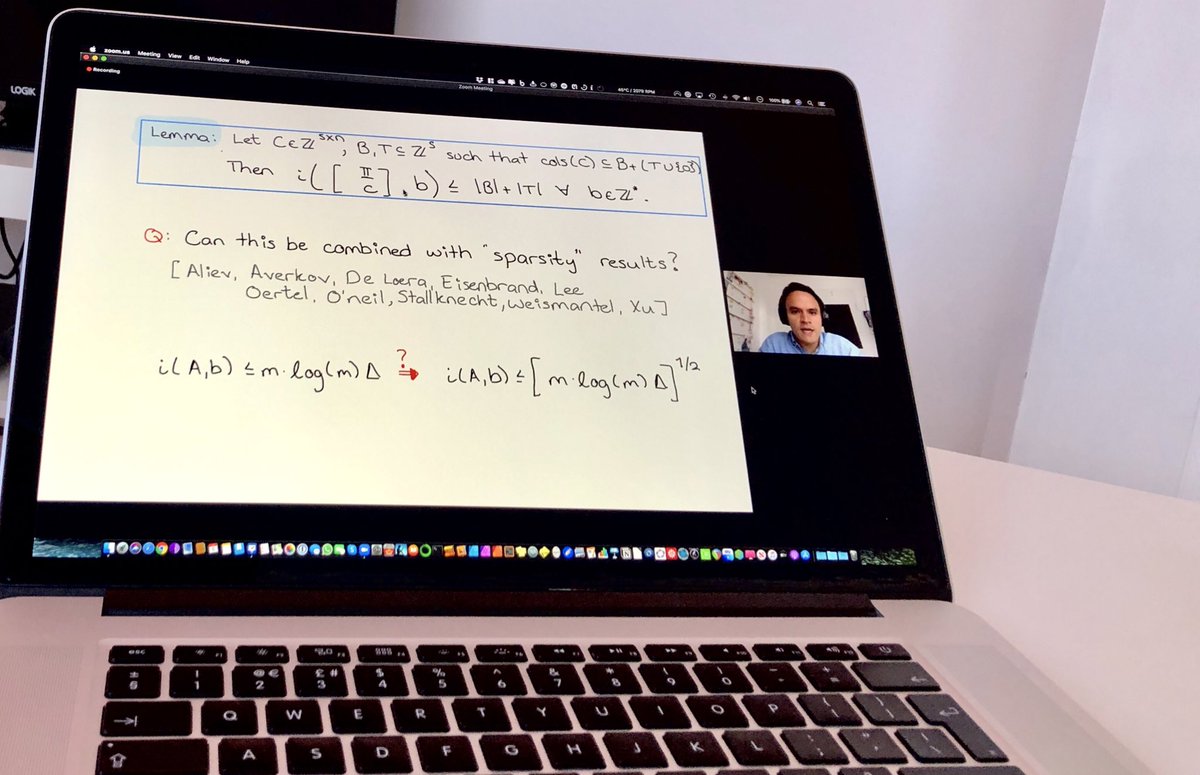 LOGIK
zoom.us Meeting View Edit Window Help
Recording
Zoom Meeting
100%
Lemma: Let C∈ℤ^{s×n}, B,T ⊆ ℤ^s such that cols(C) ⊆ B+(T∪{0})
Then i([𝕀 / C], b) ≤ |B|+|T| ∀ b∈ℤ^•.
Q: Can this be combined with "sparsity" results?
[Aliev, Averkov, De Loera, Eisenbrand, Lee
Oertel, O'neil, Stallknecht, Weismantel, Xu]
i(A,b) ≤ m·log(m) Δ ?⇒ i(A,b) ≤ [m·log(m) Δ]^{1/2}
esc
± § ! 1 @ € 2 £ # 3 $ 4 % 5 ^ 6 & 7 * 8 ( 9 ) 0 _ - + =
Q W E R T Y U I O P
A S D F G H J K L